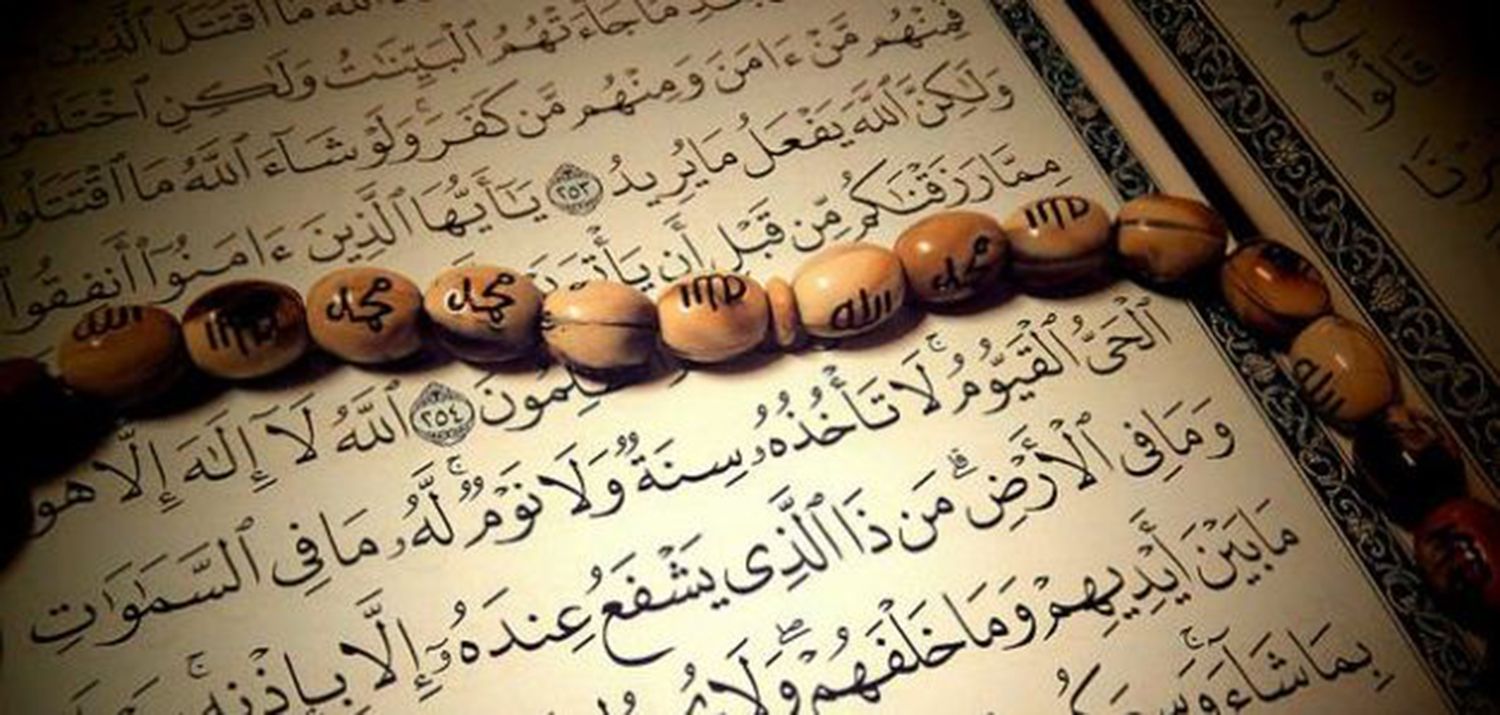 مَا ٱقْتَتَلَ ٱلَّذِينَ
مَا جَآءَتْهُمُ ٱلْبَيِّنَٰتُ وَلَٰكِنِ ٱخْتَلَفُوا
فَمِنْهُم مَّنْ ءَامَنَ وَمِنْهُم مَّن كَفَرَ ۚ وَلَوْ شَآءَ ٱللَّهُ مَا ٱقْتَتَلُوا
وَلَٰكِنَّ ٱللَّهَ يَفْعَلُ مَا يُرِيدُ ٢٥٣ يَٰٓأَيُّهَا ٱلَّذِينَ ءَامَنُوٓا۟ أَنفِقُوا۟
مِمَّا رَزَقْنَٰكُم مِّن قَبْلِ أَن
الله
الله
محمد
محمد
الله
محمد
الله
الله
الله
٢٥٤ ٱللَّهُ لَآ إِلَٰهَ إِلَّا هُوَ
ٱلْحَىُّ ٱلْقَيُّومُ ۚ لَا تَأْخُذُهُۥ سِنَةٌ وَلَا نَوْمٌ ۚ لَّهُۥ مَا فِى ٱلسَّمَٰوَٰتِ
وَمَا فِى ٱلْأَرْضِ ۗ مَن ذَا ٱلَّذِى يَشْفَعُ عِندَهُۥٓ إِلَّا بِإِذْنِهِۦ ۚ
مَا بَيْنَ أَيْدِيهِمْ وَمَا خَلْفَهُمْ ۖ وَلَا
بِمَا شَآءَ ۚ
قَالُوا۟